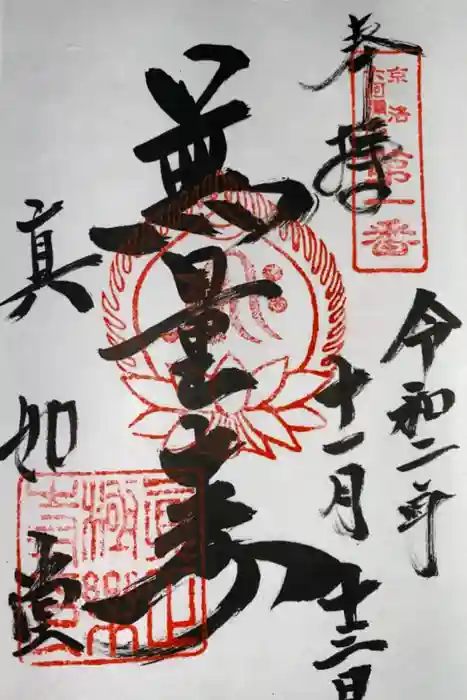 奉拝
京洛
六阿弥陀
第一番
令和二年
十一月
十三日
無量寿
真如堂